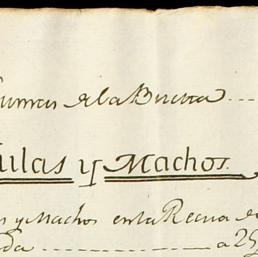 de la Buelta ....
ulas y Machos.
s y Machos en la Recua de
da ............ a 25